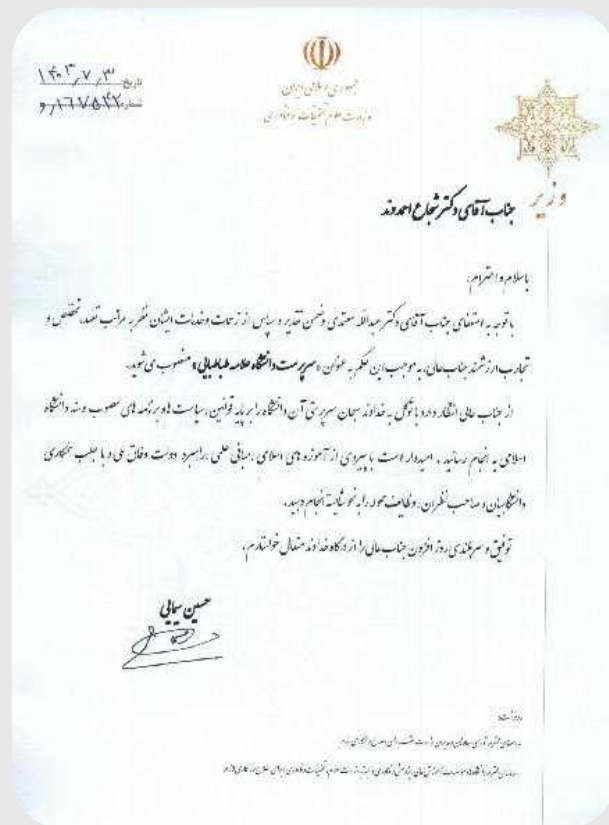 جمهوری اسلامی ایران
وزارت علوم، تحقیقات و فناوری
تاریخ ۱۴۰۳٫۷٫۳
شماره ۱۶۷۵۴۲٫و
وزیر
جناب آقای دکتر شجاع احمدوند
با سلام و احترام؛
با توجه به استعفای جناب آقای دکتر عبدالله معتمدی و ضمن تقدیر و سپاس از زحمات و خدمات ایشان نظر به مراتب تعهد، تخصص و
تجارب ارزشمند جناب عالی، به موجب این حکم به عنوان «سرپرست دانشگاه علامه طباطبایی» منصوب می شوید.
از جناب عالی انتظار دارد با توکل به خداوند سبحان سرپرستی آن دانشگاه را بر پایه قوانین، سیاست ها و برنامه های مصوب و سند دانشگاه
اسلامی به انجام رسانید. امیدوار است با پیروی از آموزه های اسلامی، مبانی علمی، راهبرد دولت وفاق ملی و با جلب همکاری
دانشگاهیان و صاحب نظران، وظایف خود را به نحو شایسته انجام دهید.
توفیق و سربلندی روز افزون جناب عالی را از درگاه خداوند متعال خواستارم.
حسین سیمایی
رونوشت: